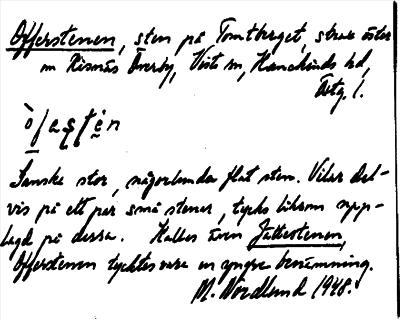 Offerstenen, sten på Tomtberget, strax öster
om Kismäs Överby, Viste sn, Hanekinds hd,
Östg. l.
ò̱faʂtẹ́n
Ganska stor, någorlunda flat sten. Vilar del-
vis på ett par små stenar, tycks liksom upp-
lagd på dessa. Kallas även Jättestenen,
Offerstenen tycktes vara en yngre benämning.
M. Nordlund 1948.